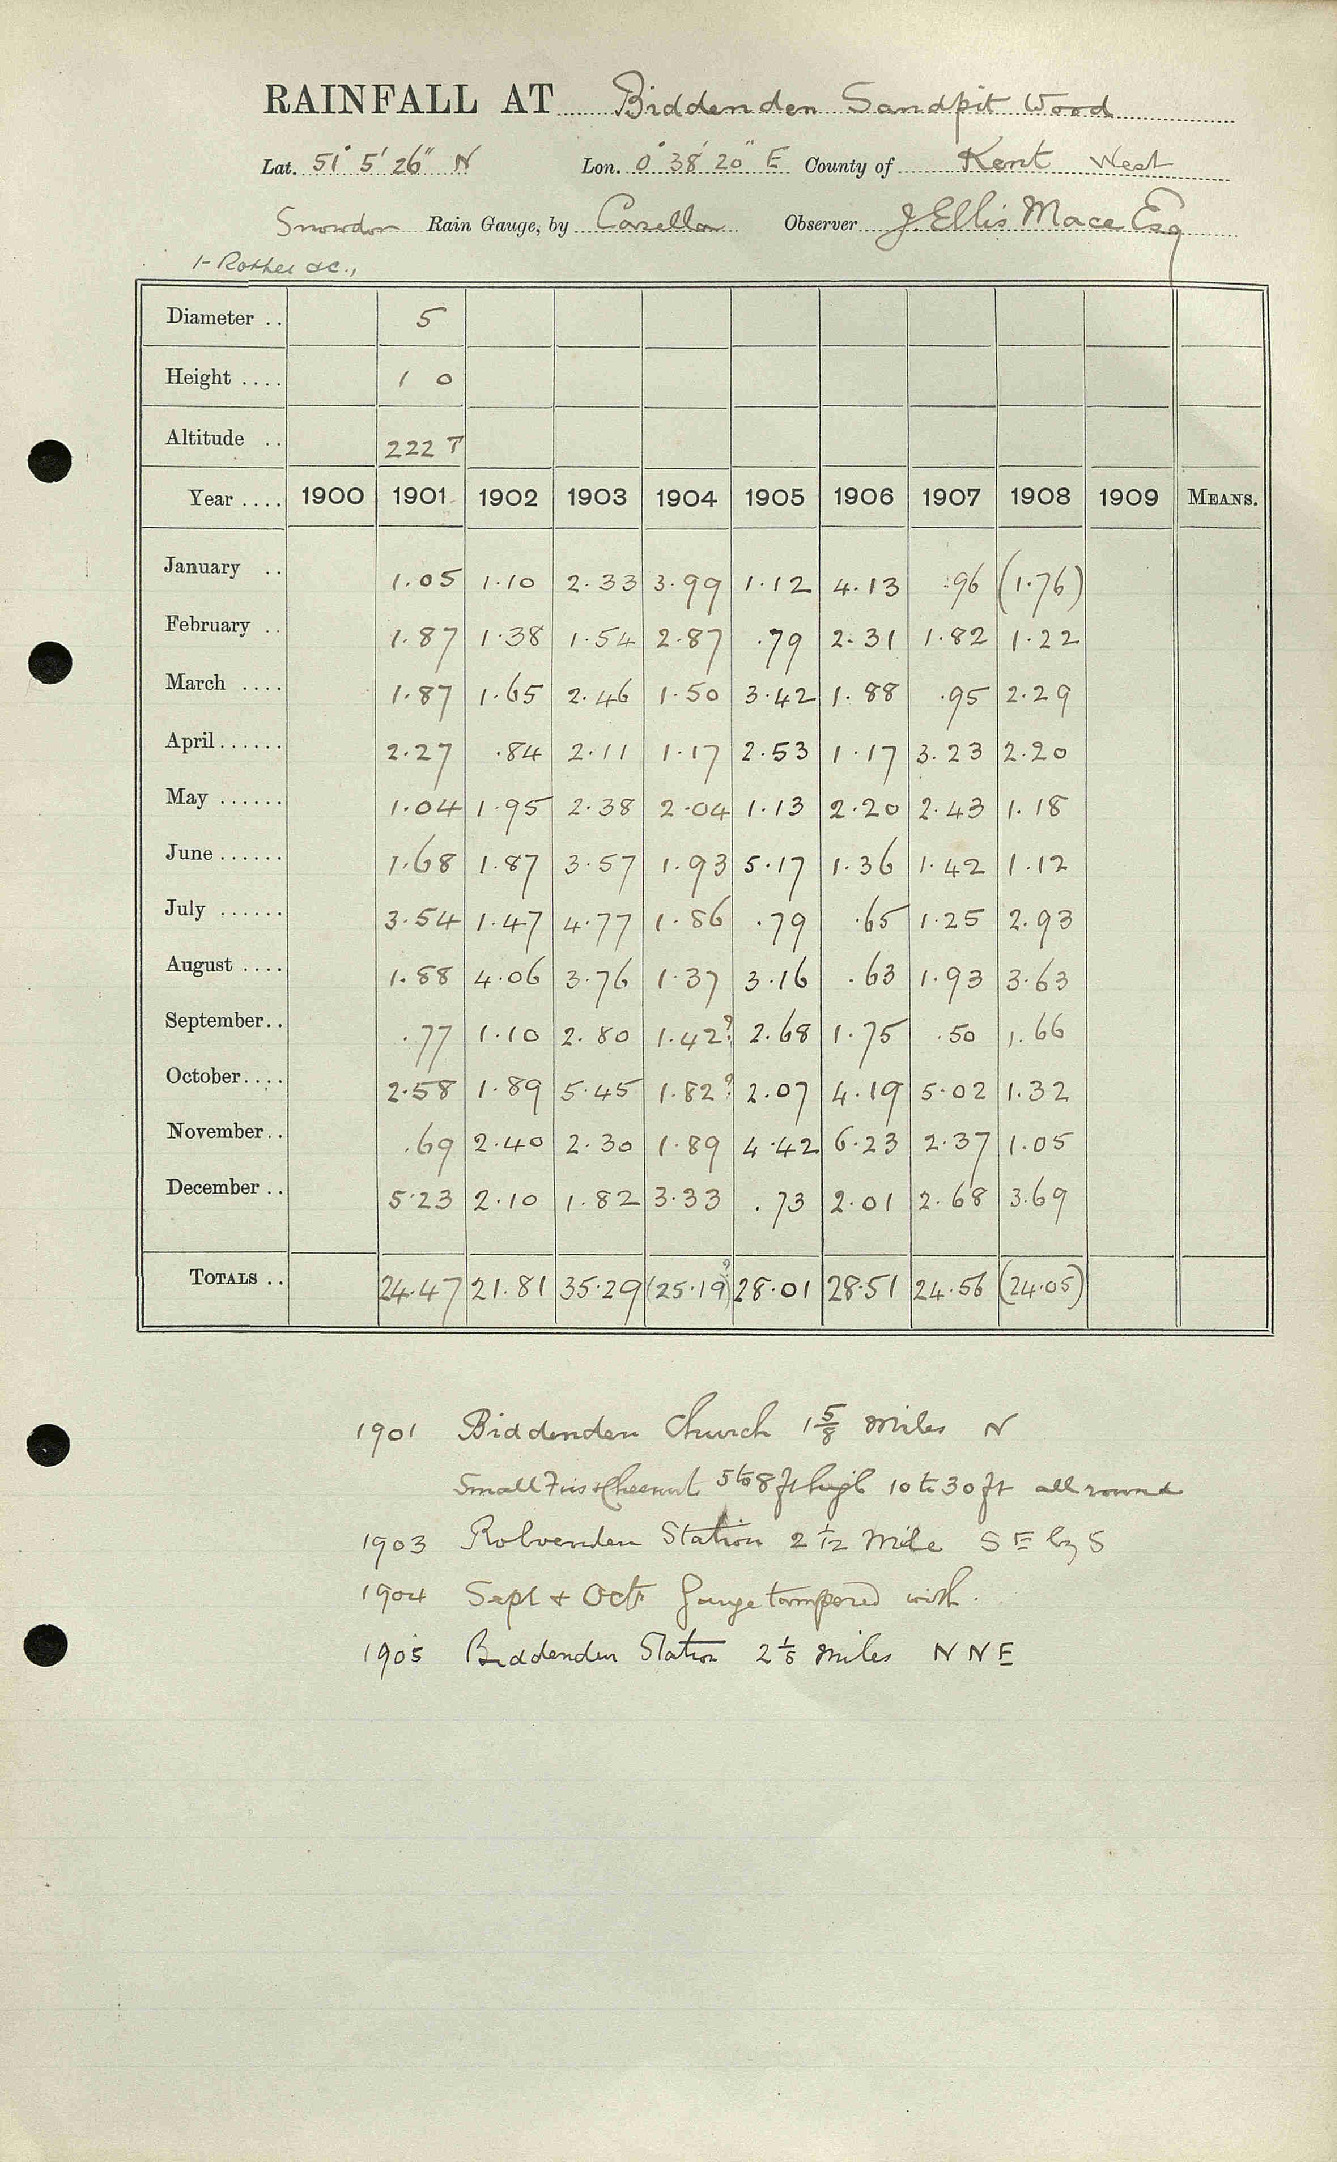 RAINFALL AT Biddenden Sandpit Wood
Lat. 51° 5' 26" N Lon. 0° 38' 20" E County of Kent West
Snowdon Rain Gauge, by Casella Observer J. Ellis Mace Esq
1- Rother &c.,
Diameter .. 5
Height .... 1 0
Altitude .. 222 T
Year .... 1900 1901 1902 1903 1904 1905 1906 1907 1908 1909 MEANS.
January .. 1.05 1.10 2.33 3.99 1.12 4.13 .96 (1.76)
February .. 1.87 1.38 1.54 2.87 .79 2.31 1.82 1.22
March .... 1.87 1.65 2.46 1.50 3.42 1.88 .95 2.29
April...... 2.27 .84 2.11 1.17 2.53 1.17 3.23 2.20
May ...... 1.04 1.95 2.38 2.04 1.13 2.20 2.43 1.18
June...... 1.68 1.87 3.57 1.93 5.17 1.36 1.42 1.12
July ...... 3.54 1.47 4.77 1.86 .79 .65 1.25 2.93
August .... 1.88 4.06 3.76 1.37 3.16 .63 1.93 3.63
September.. .77 1.10 2.80 1.42? 2.68 1.75 .50 1.66
October.... 2.58 1.89 5.45 1.82? 2.07 4.19 5.02 1.32
November.. .69 2.40 2.30 1.89 4.42 6.23 2.37 1.05
December .. 5.23 2.10 1.82 3.33 .73 2.01 2.68 3.69
TOTALS .. 24.47 21.81 35.29 (25.19)? 28.01 28.51 24.56 (24.05)
1901 Biddenden Church 1 5/8 miles N
Small Firs & Chesnut 5 to 8 ft high 10 to 30 ft all round
1903 Rolvenden Station 2 1/2 Mile S E by S
1904 Sept & Oct Gauge tampered with.
1905 Biddenden Station 2 1/8 miles N N E